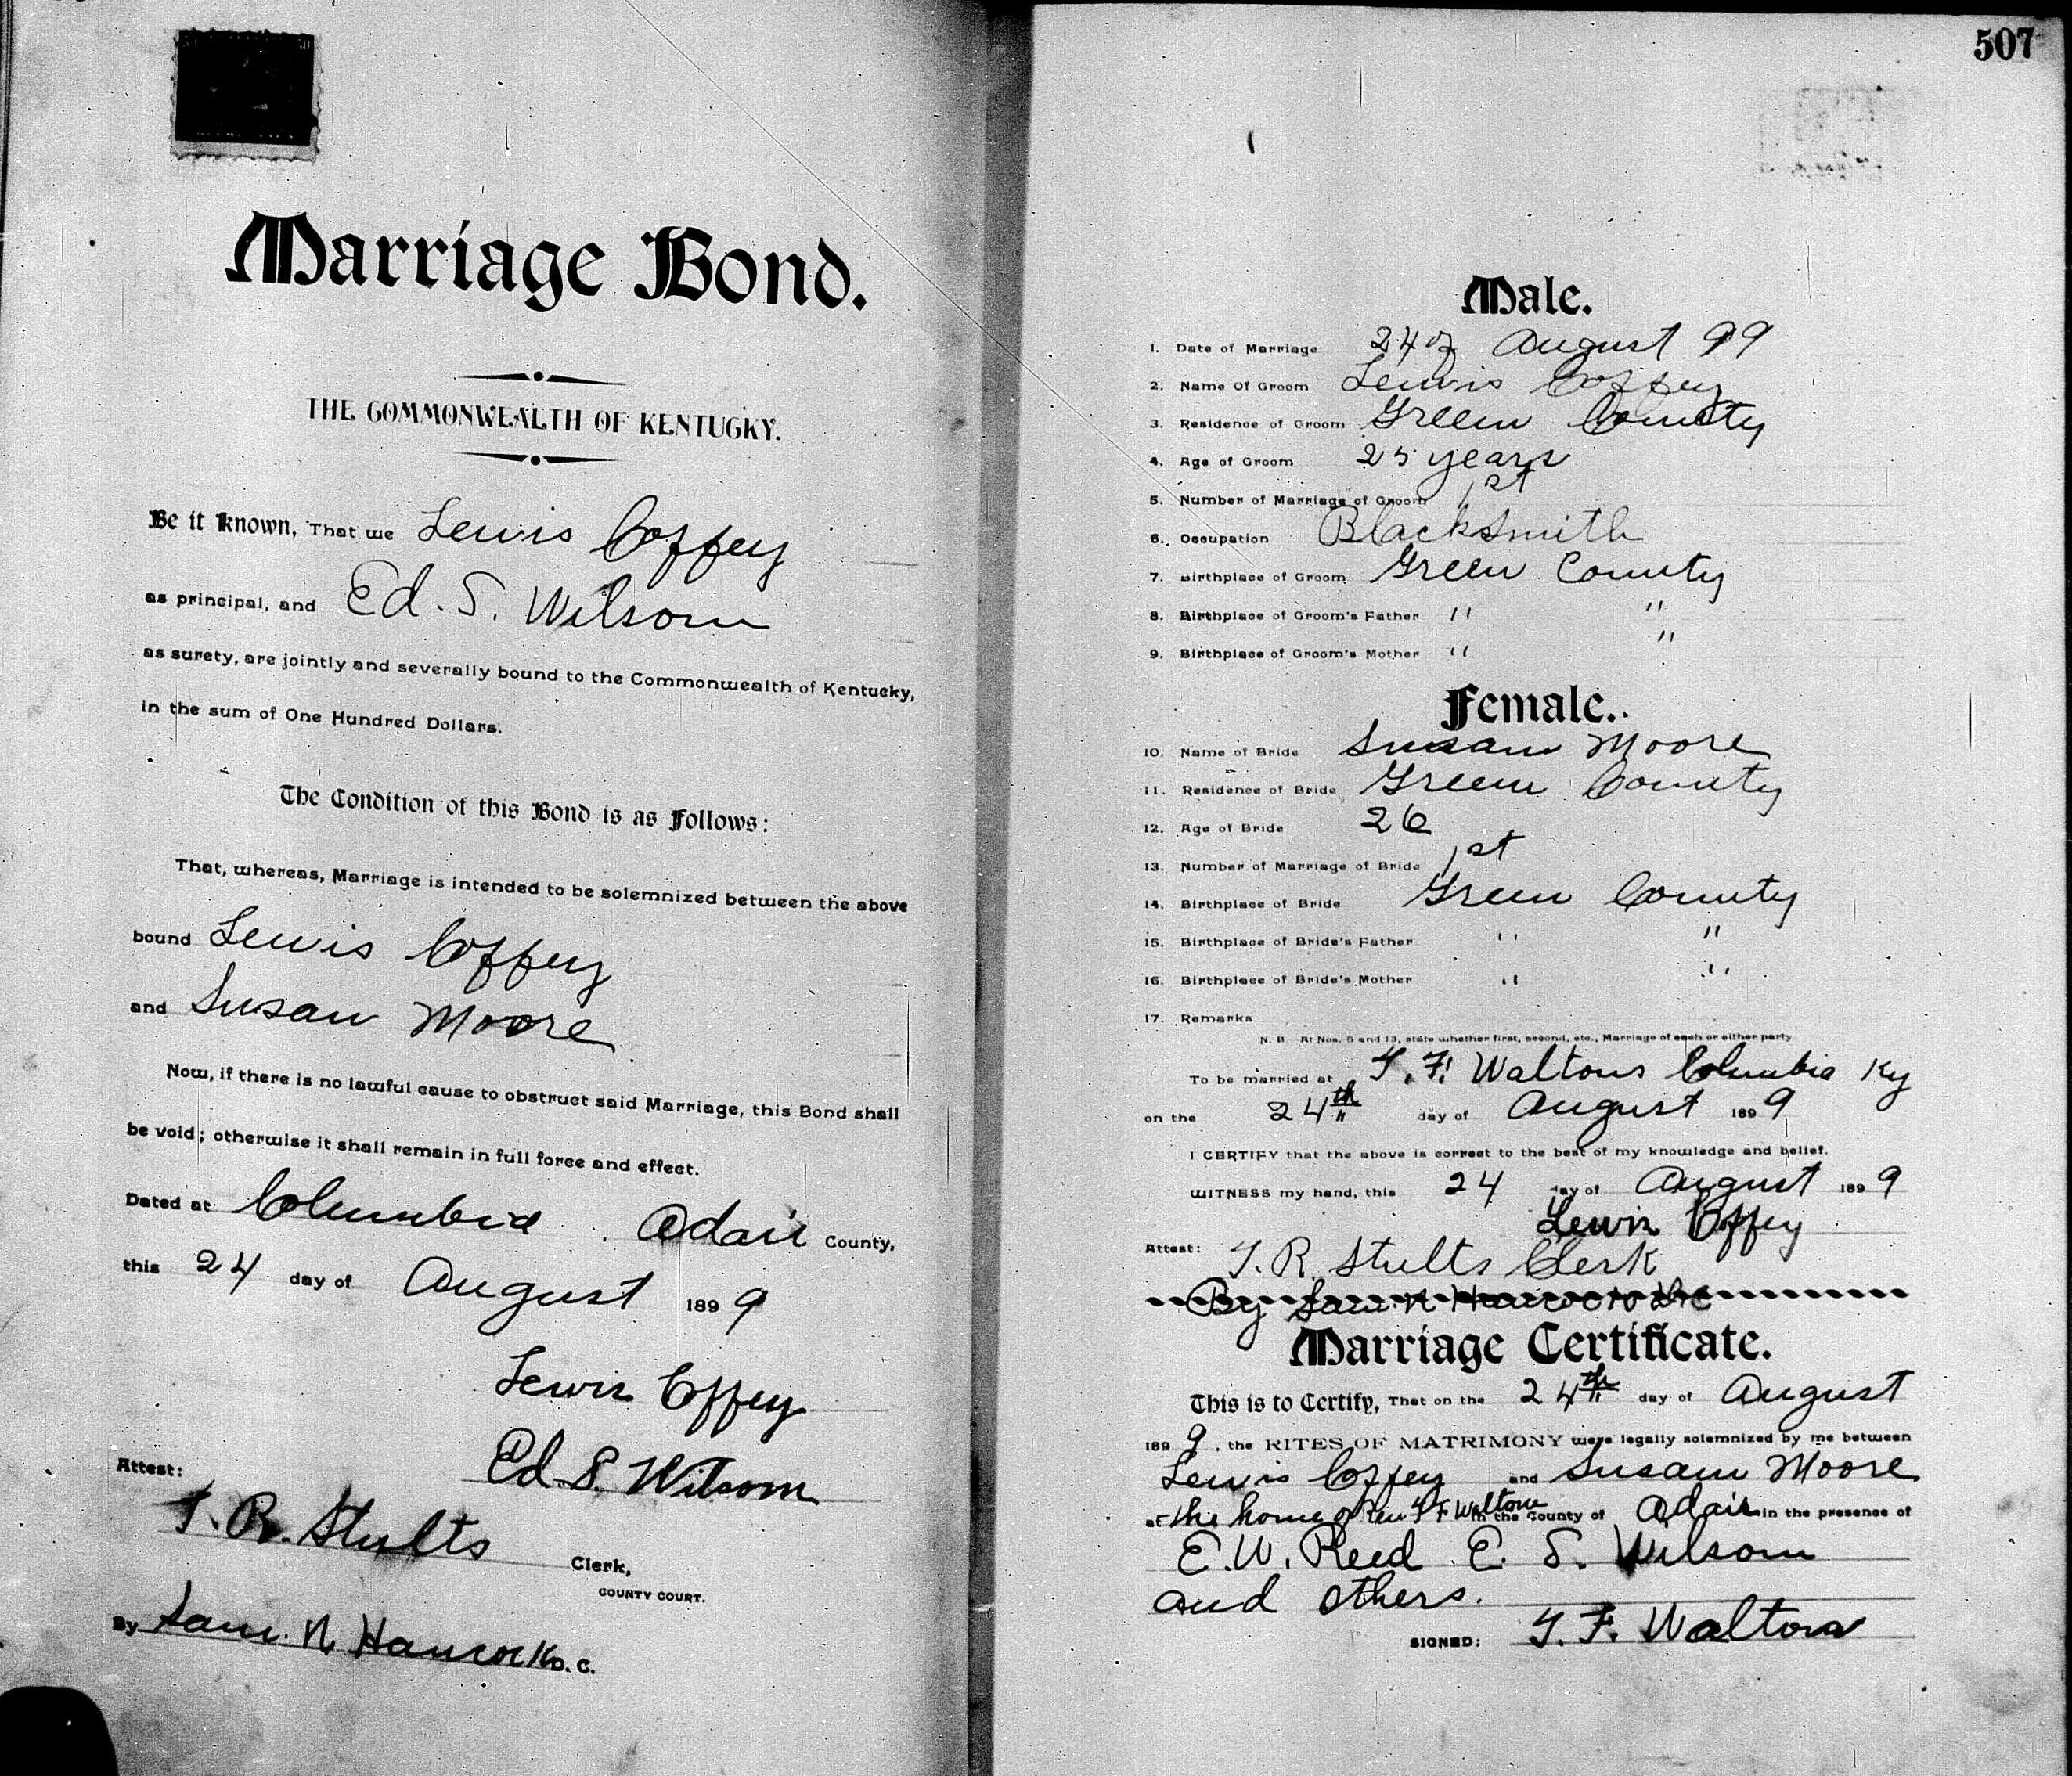 Marriage Bond.
THE COMMONWEALTH OF KENTUCKY.
Be it known, That we Lewis Coffey
as principal, and Ed. S. Wilson
as surety, are jointly and severally bound to the Commonwealth of Kentucky,
in the sum of One Hundred Dollars.
The Condition of this Bond is as Follows:
That, whereas, Marriage is intended to be solemnized between the above
bound Lewis Coffey
and Susan Moore
Now, if there is no lawful cause to obstruct said Marriage, this Bond shall
be void; otherwise it shall remain in full force and effect.
Dated at Columbia. Adair County,
this 24 day of August 1899
Lewis Coffey
Ed. S. Wilson
Attest:
T. R. Stults Clerk,
COUNTY COURT.
By Sam. N. Hancock D. C.
507
Male.
1. Date of Marriage 24 August 99
2. Name Of Groom Lewis Coffey
3. Residence of Groom Green County
4. Age of Groom 25 years
5. Number of Marriage of Groom 1st
6. Occupation Blacksmith
7. Birthplace of Groom Green County
8. Birthplace of Groom's Father " "
9. Birthplace of Groom's Mother " "
Female.
10. Name of Bride Susan Moore
11. Residence of Bride Green County
12. Age of Bride 26
13. Number of Marriage of Bride 1st
14. Birthplace of Bride Green County
15. Birthplace of Bride's Father " "
16. Birthplace of Bride's Mother " "
17. Remarks
N. B. At Nos. 5 and 13, state whether first, second, etc., Marriage of each or either party
To be married at T. F. Waltons Columbia Ky
on the 24th day of August 1899
I CERTIFY that the above is correct to the best of my knowledge and belief.
WITNESS my hand, this 24 day of August 1899
Lewis Coffey
Attest: T. R. Stults Clerk
By Sam. N Hancock DC
Marriage Certificate.
This is to Certify, That on the 24th day of August
1899, the RITES OF MATRIMONY were legally solemnized by me between
Lewis Coffey and Susan Moore
at the home of Rev T F Walton in the County of Adair in the presence of
E. W. Reed E. S. Wilson
and others.
SIGNED: T. F. Walton